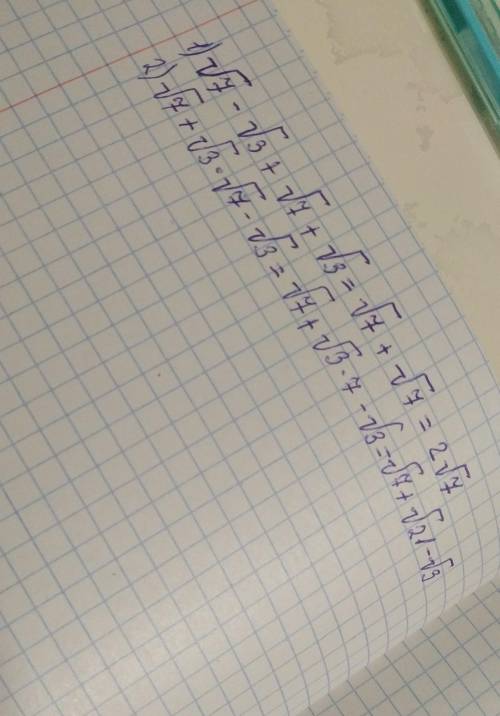 1) √7 - √3 + √7 + √3 = √7 + √7 = 2√7
2) √7 + √3 · √7 - √3 = √7 + √3·7 - √3 = √7 + √21 - √3